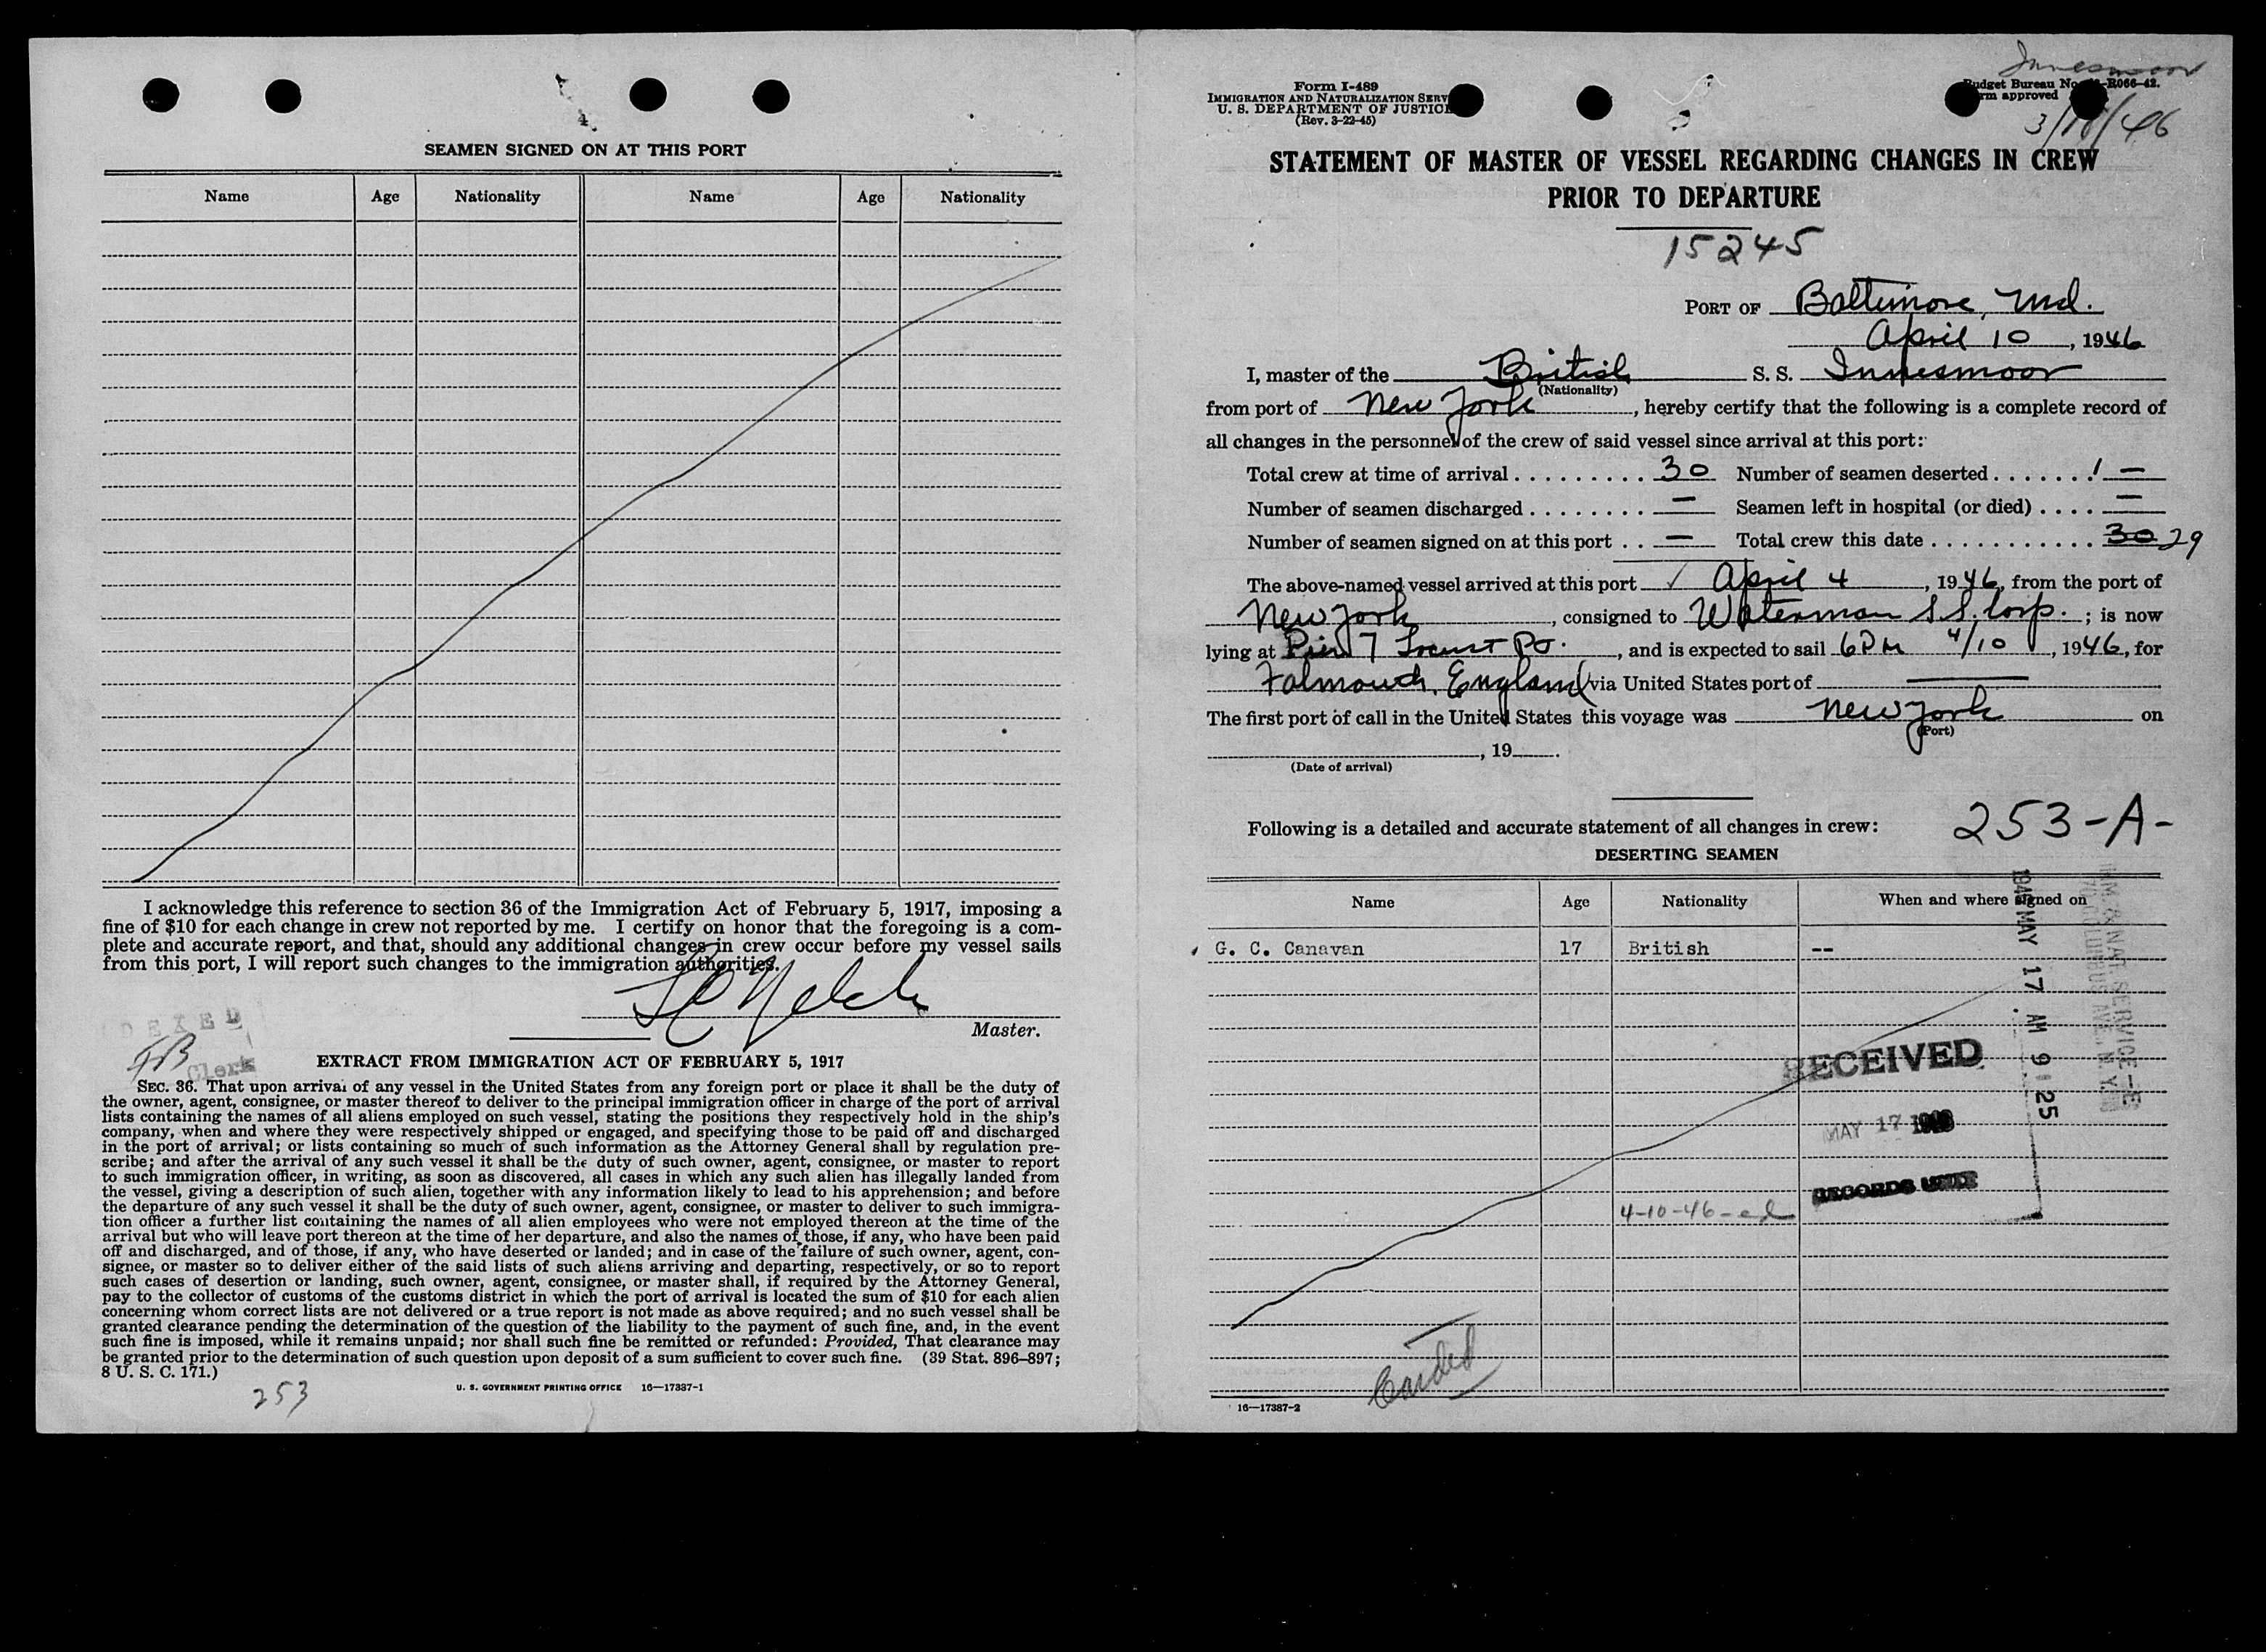 SEAMEN SIGNED ON AT THIS PORT
Name Age Nationality Name Age Nationality
I acknowledge this reference to section 36 of the Immigration Act of February 5, 1917, imposing a
fine of $10 for each change in crew not reported by me. I certify on honor that the foregoing is a com-
plete and accurate report, and that, should any additional changes in crew occur before my vessel sails
from this port, I will report such changes to the immigration authorities.
Master.
DEXED
Clerk
EXTRACT FROM IMMIGRATION ACT OF FEBRUARY 5, 1917
SEC. 36. That upon arrival of any vessel in the United States from any foreign port or place it shall be the duty of
the owner, agent, consignee, or master thereof to deliver to the principal immigration officer in charge of the port of arrival
lists containing the names of all aliens employed on such vessel, stating the positions they respectively hold in the ship's
company, when and where they were respectively shipped or engaged, and specifying those to be paid off and discharged
in the port of arrival; or lists containing so much of such information as the Attorney General shall by regulation pre-
scribe; and after the arrival of any such vessel it shall be the duty of such owner, agent, consignee, or master to report
to such immigration officer, in writing, as soon as discovered, all cases in which any such alien has illegally landed from
the vessel, giving a description of such alien, together with any information likely to lead to his apprehension; and before
the departure of any such vessel it shall be the duty of such owner, agent, consignee, or master to deliver to such immigra-
tion officer a further list containing the names of all alien employees who were not employed thereon at the time of the
arrival but who will leave port thereon at the time of her departure, and also the names of those, if any, who have been paid
off and discharged, and of those, if any, who have deserted or landed; and in case of the failure of such owner, agent, con-
signee, or master so to deliver either of the said lists of such aliens arriving and departing, respectively, or so to report
such cases of desertion or landing, such owner, agent, consignee, or master shall, if required by the Attorney General,
pay to the collector of customs of the customs district in which the port of arrival is located the sum of $10 for each alien
concerning whom correct lists are not delivered or a true report is not made as above required; and no such vessel shall be
granted clearance pending the determination of the question of the liability to the payment of such fine, and, in the event
such fine is imposed, while it remains unpaid; nor shall such fine be remitted or refunded: Provided, That clearance may
be granted prior to the determination of such question upon deposit of a sum sufficient to cover such fine. (39 Stat. 896–897;
8 U. S. C. 171.)
U. S. GOVERNMENT PRINTING OFFICE 16—17387-1
253
Innesmoor
Form I-489
IMMIGRATION AND NATURALIZATION SERV
U. S. DEPARTMENT OF JUSTICE
(Rev. 3-22-45)
Budget Bureau No. R066-42.
approved
STATEMENT OF MASTER OF VESSEL REGARDING CHANGES IN CREW
PRIOR TO DEPARTURE
15245
PORT OF Baltimore, Md.
April 10, 1946
I, master of the British S. S. Innesmoor
(Nationality)
from port of New York, hereby certify that the following is a complete record of
all changes in the personnel of the crew of said vessel since arrival at this port:
Total crew at time of arrival 30 Number of seamen deserted 1 —
Number of seamen discharged — Seamen left in hospital (or died) —
Number of seamen signed on at this port — Total crew this date 30 29
The above-named vessel arrived at this port April 4, 1946, from the port of
New York, consigned to Waterman S.S. Corp.; is now
lying at Pier 7 Locust Pt., and is expected to sail 6PM 4/10, 1946, for
Falmouth, England via United States port of —
The first port of call in the United States this voyage was New York on
(Port)
, 19 .
(Date of arrival)
Following is a detailed and accurate statement of all changes in crew: 253-A-
DESERTING SEAMEN
Name Age Nationality When and where signed on
G. C. Canavan 17 British --
1946 MAY 17 AM 9 25
RECEIVED
MAY 17 1946
RECORDS UNIT
4-10-46
Carded
16—17387-2